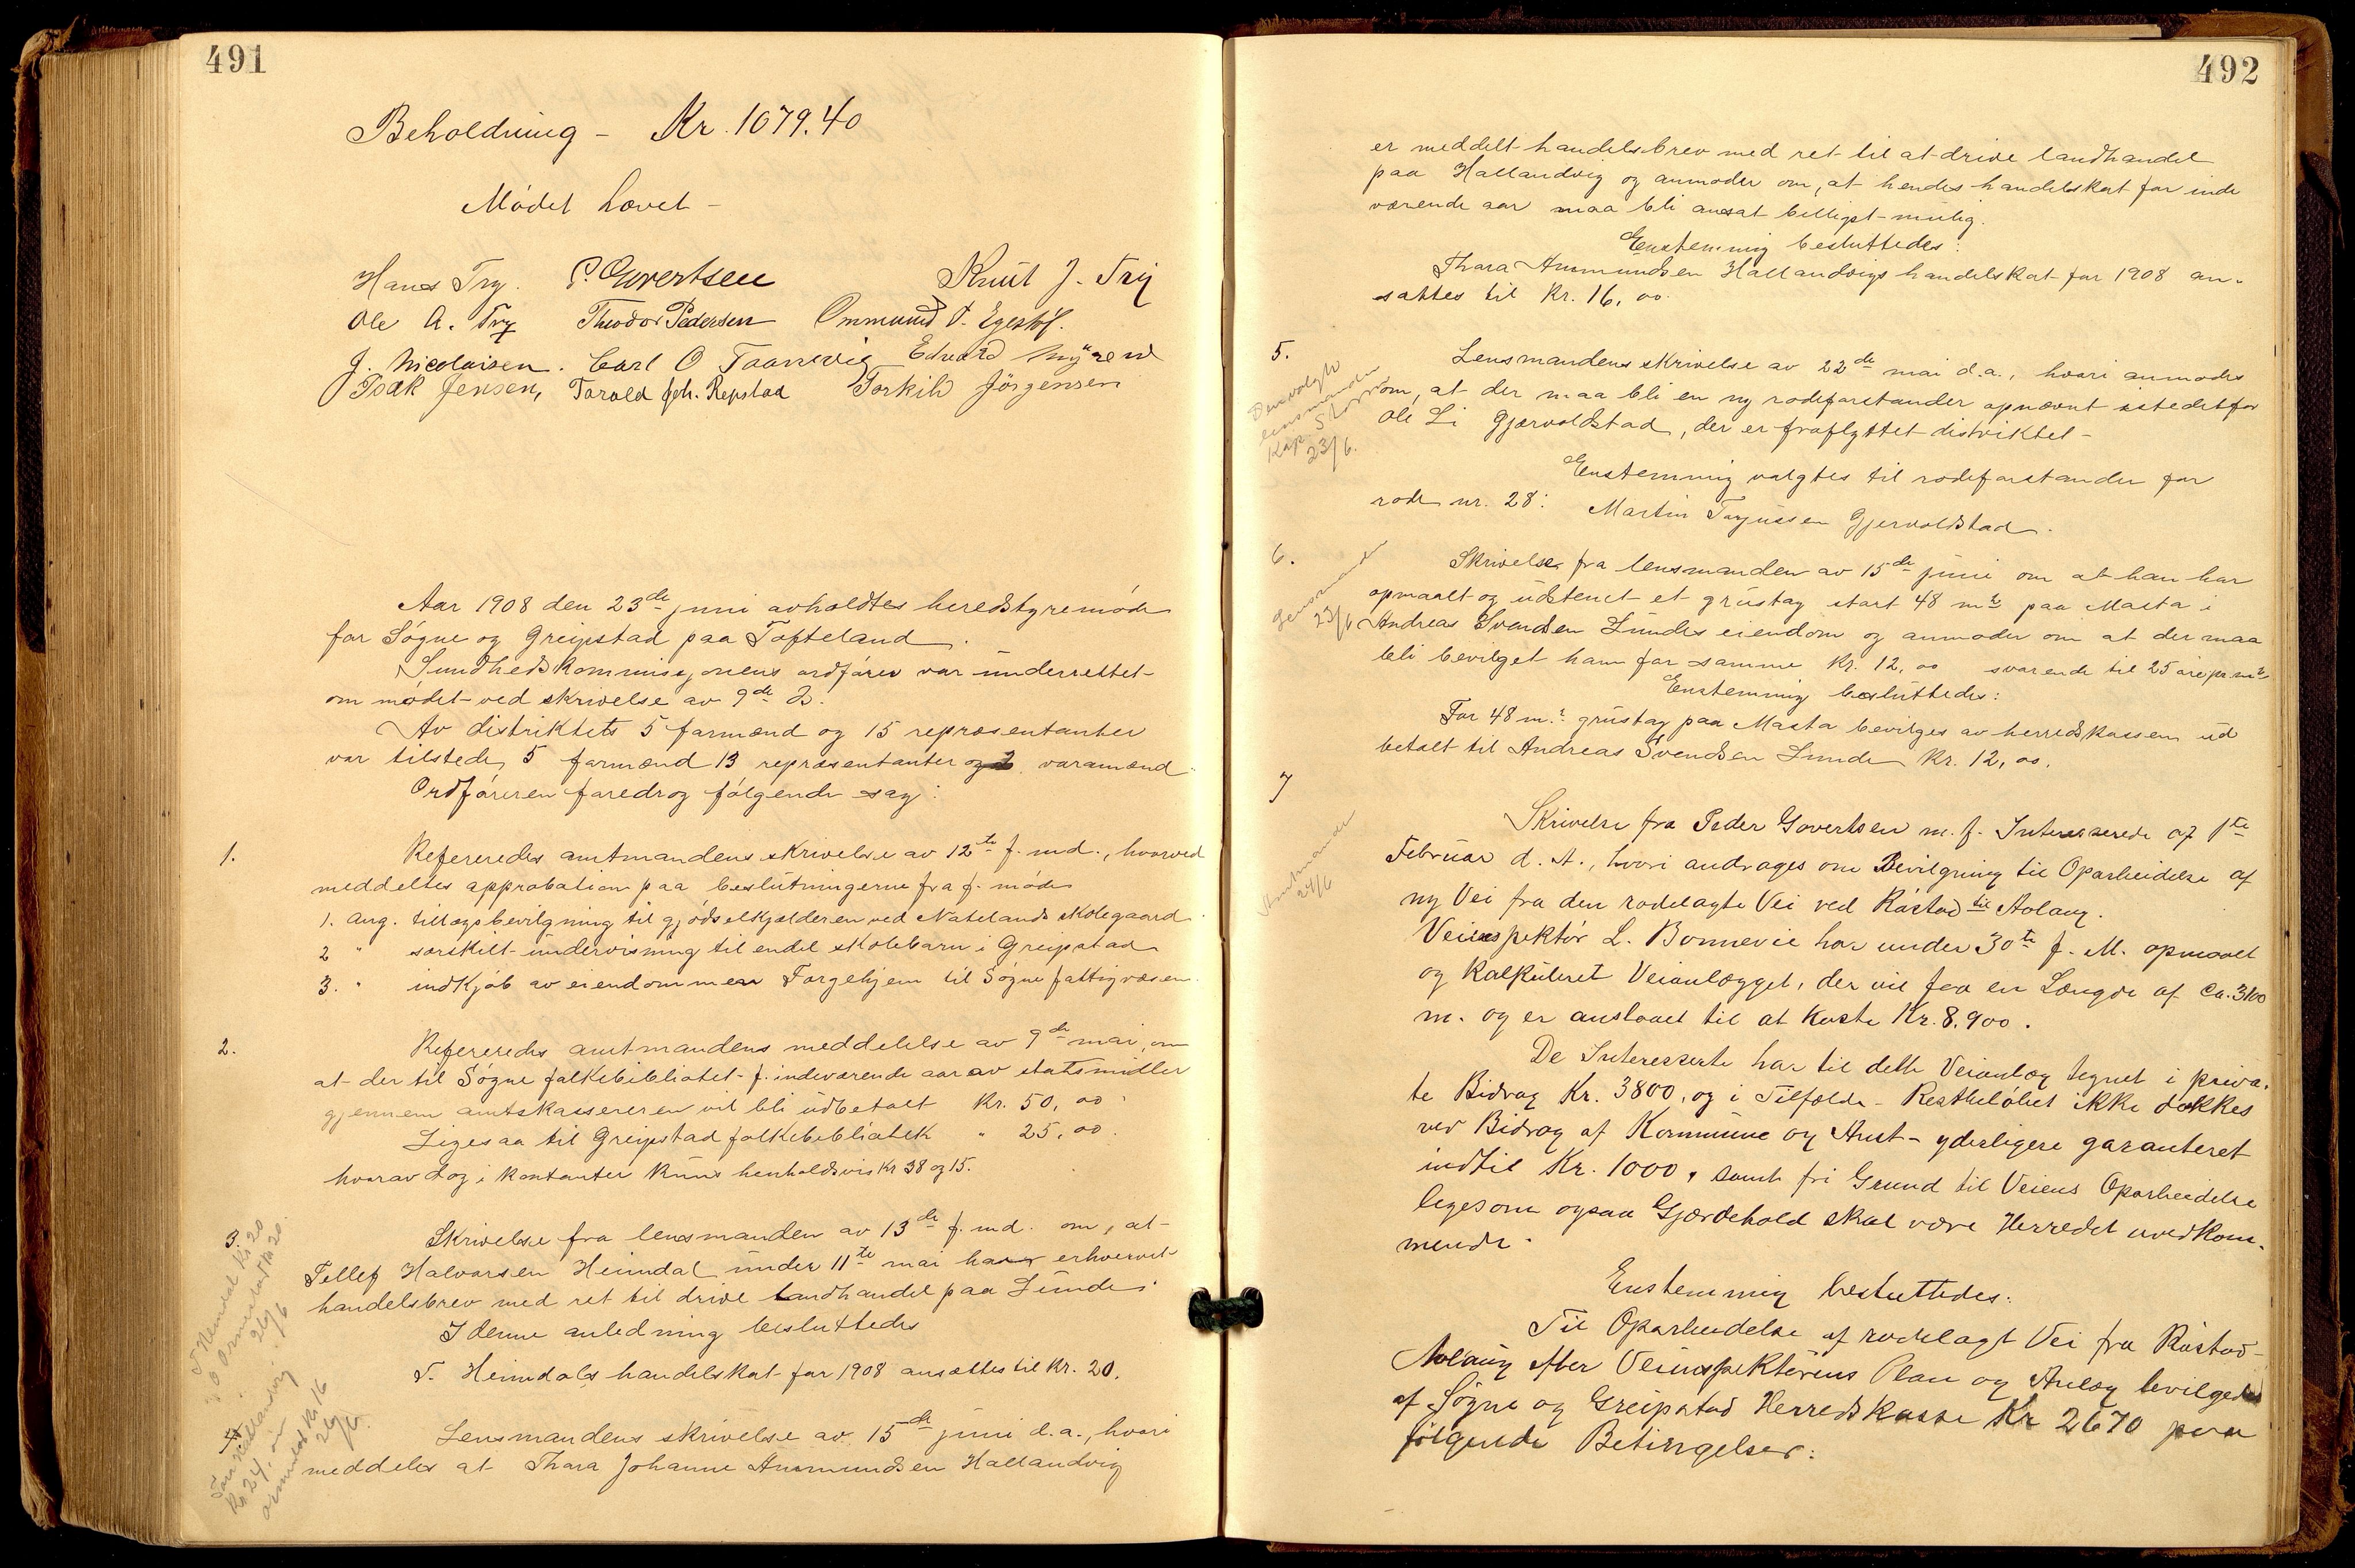 491
Beholdning - Kr. 1079.40
Mødet hævet -
Hans Try. P. Govertsen Knut J. Try
Ole A. Try Theodor Pedersen Ommund T. Egestøl.
J. Nicolaisen. Carl O Taanevig Edvard Myren
Isak Jensen, Torald Joh. Repstad Torkild Jörgensen
Aar 1908 den 23de juni avholdtes heredstyremøde
for Søgne og Greipstad paa Tofteland.
Sundhedskommisjonens ordfører var underrettet
om mødet ved skrivelse av 9de ds.
Av distriktets 5 formænd og 15 repræsentanter
var tilstede, 5 formænd 13 repræsentanter og 2 varamænd.
Ordføreren foredrog følgende sag:
1. Refereredes amtmandens skrivelse av 12te f. md., hvorved
meddeltes approbation paa beslutningerne fra f. møde
1. ang. tillægsbevilgning til gjødselkjælderen ved Natelands skolegaard.
2 " særskilt undervisning til endel skolebarn i Greipstad
3. " indkjøb av eiendommen Fargehjem til Søgne fattigvæsen.
2. Refereredes amtmandens meddelelse av 9de mai, om
at der til Søgne folkebibliotek f. indeværende aar av statsmidler
gjennem amtskassereren vil bli udbetalt Kr. 50,00.
Ligesaa til Greipstad folkebibliotek " 25,00.
hvorav dog i kontanter kuns henholdsvis Kr 38 og 15.
3. Skrivelse fra lensmanden av 13de f. md. om, at
Tellef Halvorsen Heimdal under 11te mai har erhvervet
handelsbrev med ret til drive landhandel paa Lunde.
I denne anledning besluttedes
T. Heimdals handelskat for 1908 ansættes til Kr. 20.
4 Lensmandens skrivelse av 15de juni d.a., hvori
meddeles at Thara Johanne Ammundsen Hallandvig
T Heimdal Kr 20
26/6
Kr 24.
Kr 16
26/6
492
er meddelt handelsbrev med ret til at drive landhandel
paa Hallandvig og anmoder om, at hendes handelskat for inde
værende aar maa bli ansat billigst mulig.
Enstemmig besluttedes:
Thara Ammundsen Hallandvigs handelskat for 1908 an-
sattes til Kr. 16,00.
5. Lensmandens skrivelse av 22de mai d.a., hvori anmodes
om, at der maa bli en ny rodeforstander opnævnt istedetfor
Ole Li Gjærvoldstad, der er fraflyttet distriktet -
Den valgte
lensmanden
23/6.
Enstemmig valgtes til rodeforstander for
rode nr. 28: Martin Torjussen Gjervoldstad.
6. Skrivelse fra lensmanden av 15de juni om at han har
opmaalt og udstenet et grustag stort 48 m2 paa Masta i
Andreas Svendsen Lundes eiendom og anmoder om at der maa
bli bevilget ham for samme Kr. 12,00 svarende til 25 øre pr m2
Lensmanden
23/6
Enstemmig besluttedes:
For 48 m.2 grustag paa Masta bevilges av herredskassen ud
betalt til Andreas Svendsen Lunde Kr. 12,00.
7 Skrivelse fra Peder Govertsen m. f. Interesserede af 1te
Februar d. A., hvori andrages om Bevilgning til Oparbeidelse af
ny Vei fra den rodelagte Vei ved Røstad til Aolaug.
Amtmanden
24/6
Veiinspektør L. Bonnevie har under 30te f. M. opmaalt
og kalkuleret Veianlægget, der vil faa en Længde af ca. 3100
m. og er anslaaet til at koste Kr. 8,900.
De Interesserte har til dette Veianlæg tegnet i priva-
te Bidrag Kr. 3800, og i Tilfælde - Restbeløbet ikke dækkes
ved Bidrag af Kommune og Amt - yderligere garanteret
indtil Kr. 1000, samt fri Grund til Veiens Oparbeidelse
ligesom ogsaa Gjærdehold skal være Herredet uvedkom-
mende.
Enstemmig besluttedes:
Til Oparbeidelse af rodelagt Vei fra Røstad-
Aolaug efter Veiinspektørens Plan og Anlæg bevilgedes
af Søgne og Greipstad Herredskasse Kr 2670 paa
følgende Betingelser: